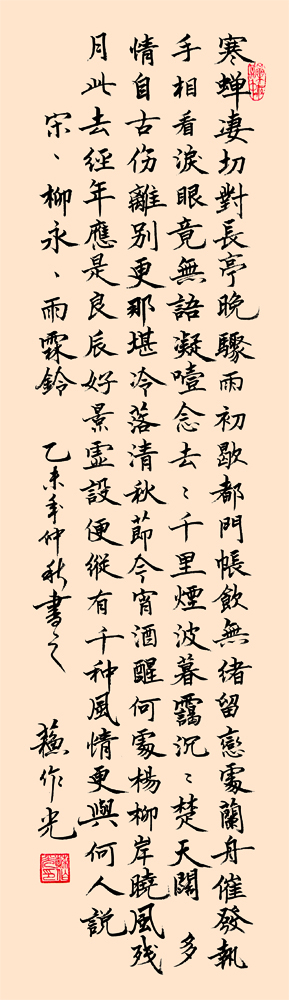 寒蝉凄切對長亭晚驟雨初歇都門帳飲無緒留戀處蘭舟催發執
手相看淚眼竟無語凝噎念去〻千里煙波暮靄沉〻楚天闊 多
情自古伤離别更那堪冷落清秋莭今宵酒醒何處楊柳岸曉風残
月此去經年應是良辰好景虚設便縱有千种風情更與何人説
宋、柳永、雨霖鈴 乙未年仲秋書之 蘇作光